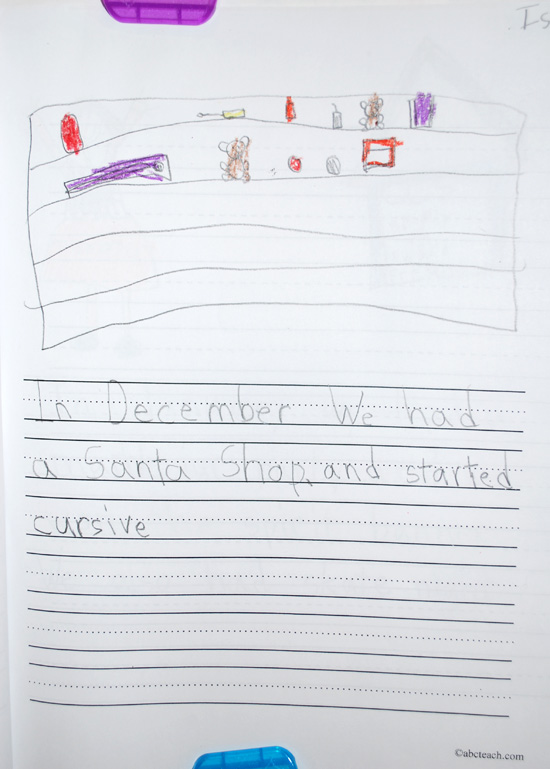 Is
In December We had
a Santa Shop. and started
cursive
©abcteach.com